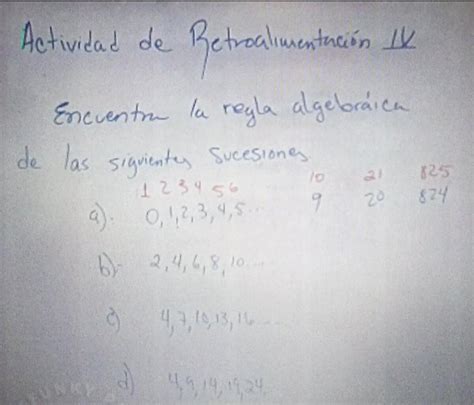 Actividad de Retroalimentación IV
Encuentra la regla algebráica
de las siguientes sucesiones
1 2 3 4 5 6 10 21 825
a). 0,1,2,3,4,5... 9 20 824
b)- 2,4,6,8,10....
c) 4,7,10,13,16....
d) 4,9,14,19,24